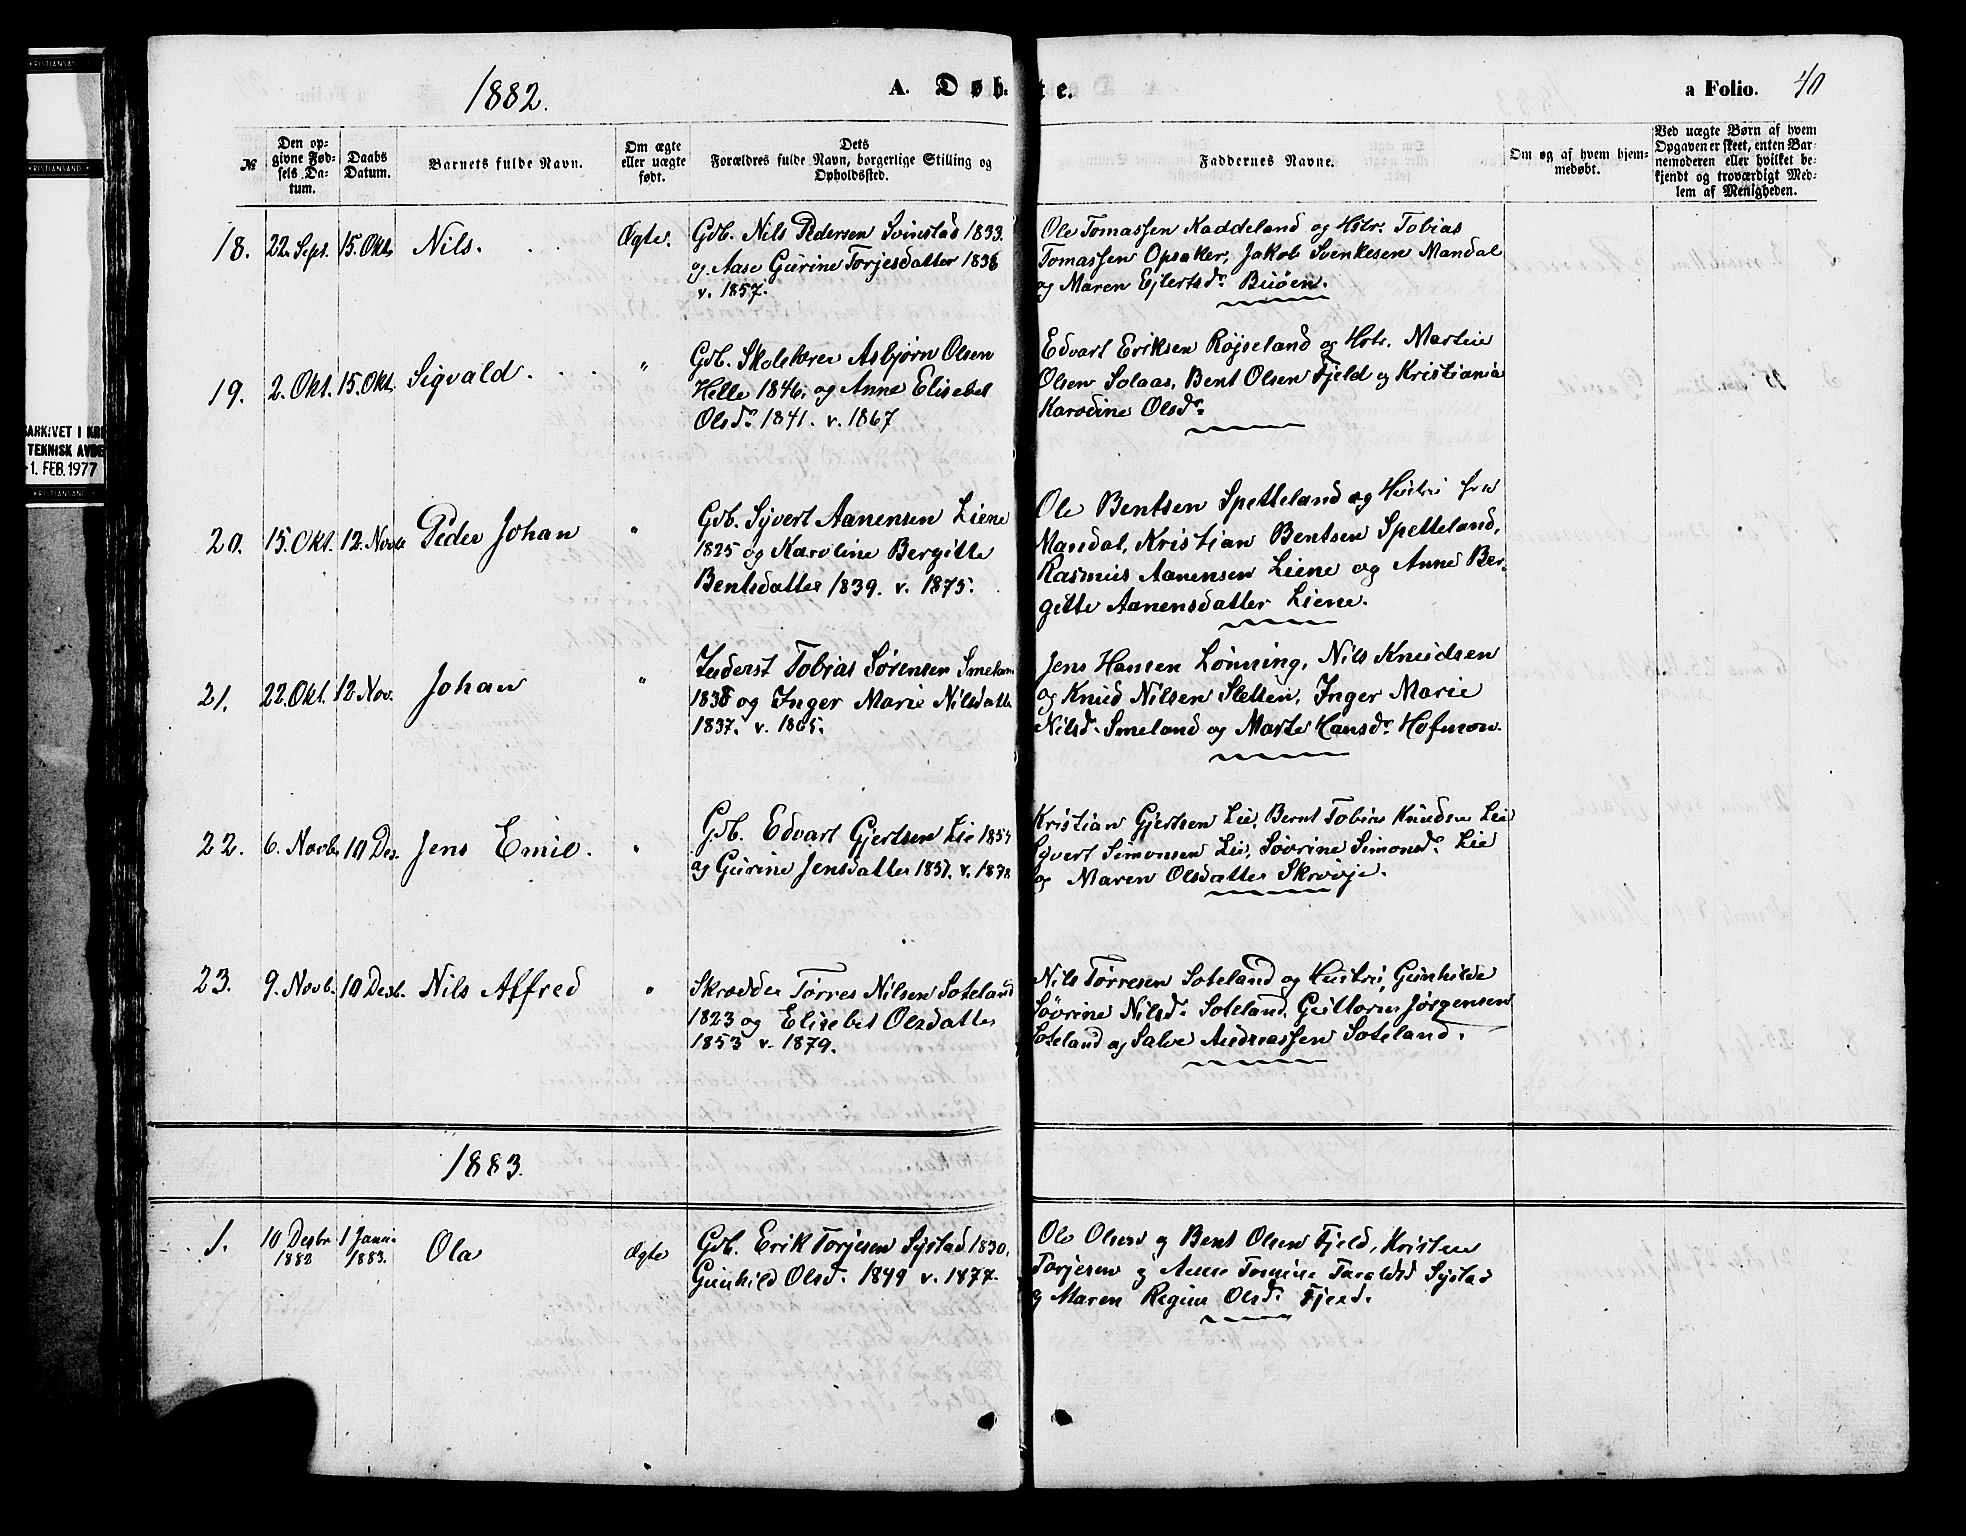 1882.
A. Døbte.
a Folio. 40
№
Den opgivne Fødsels Datum.
Daabs Datum.
Barnets fulde Navn.
Om ægte eller uægte født.
Dets Forældres fulde Navn, borgerlige Stilling og Opholdssted.
Faddernes Navne.
Om og af hvem hjemmedøbt.
Ved uægte Børn af hvem Opgaven er skeet, enten Barnemoderen eller hvilket bekjendt og troværdigt Medlem af Menigheden.
18. 22. Sept. 15. Okt. Nils. Ægte.
Gdb. Nils Pedersen Svinstad 1833.
og Aase Gurine Torjesdatter 1838
v. 1857.
Ole Tomassen Kaddeland og Hstr. Tobias
Tomassen Opsaker, Jakob Svenkesen Mandal
og Maren Ejlertsdr. Buøen.
19. 2. Okt. 15. Okt. Sigvald. "
Gdb. Skolelærer Asbjørn Olsen
Helle 1846, og Anne Elisebet
Olsdr. 1841. v. 1867
Edvart Eriksen Røjseland og Hstr. Martin
Olsen Solaas, Bent Olsen Fjeld og Kristiania
Karodine Olsdr.
20. 15. Okt. 12. Novb. Peder Johan "
Gdb. Syvert Aanensen Liene
1825 og Karoline Bergitte
Bentsdatter 1839. v. 1875.
Ole Bentsen Spetteland og Hustru fra
Mandal, Kristian Bentsen Spetteland,
Rasmus Aanensen Liene og Anne Ber-
gitte Aanensdatter Liene.
21. 22. Okt. 12. Nov. Johan "
Inderst Tobias Sørensen Smeland
1838 og Inger Marie Nilsdatter
1837. v. 1865.
Jens Hansen Lønning, Nils Knudsen
og Knud Nilsen Sletten, Inger Marie
Nilsd. Smeland og Marte Hansdr. Hofmon.
22. 6. Novb. 10 Des. Jens Emil. "
Gdb. Edvart Gjertsen Lie 1854
og Gurine Jensdatter 1857. v. 1878
Kristian Gjertsen Lie, Bernt Tobias Knudsen Lie
Syvert Simonsen Lie, Søvrine Simonsdr. Lie
og Maren Olsdatter Skrøje.
23. 9. Novb. 10 Desb. Nils Alfred "
Skrædder Tørres Nilsen Soteland
1823 og Elisebet Olsdatter
1853 v. 1879.
Nils Tørresen Soteland og Hustru, Gunhilde
Søvrine Nilsd. Soteland, Guttorm Jørgensen
Soteland og Salve Andreassen Soteland.
1883.
1. 10 Desbr. 1882 1 Janu. 1883. Ola Ægte
Gdb. Erik Torjesen Systad 1830.
Gunhild Olsd. 1849 v. 1877.
Ole Olsen og Bent Olsen Fjeld, Kristen
Torjesen og Anne Tomine Taraldsd Systad
og Maren Regine Olsd. Fjeld.
KRISTIANSAND
KRISTIANSAND
ARKIVET I KRI
TEKNISK AVDE
1. FEB. 1977
KRISTIANSAND